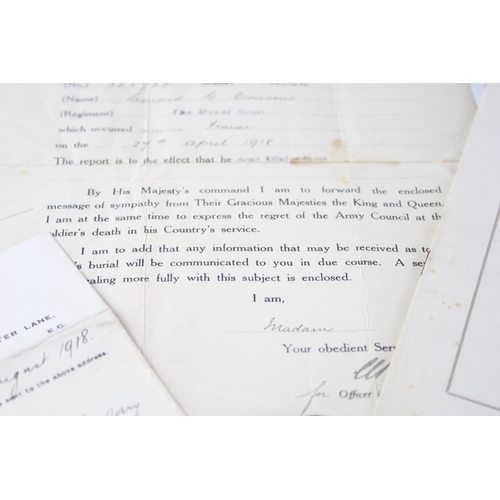 (Name) Leonard G
(Regiment) The Royal
which occurred France
on the 27th April 1918
The report is to the effect that he was Killed
By His Majesty's command I am to forward the enclosed
message of sympathy from Their Gracious Majesties the King and Queen.
I am at the same time to express the regret of the Army Council at th
oldier's death in his Country's service.
I am to add that any information that may be received as to
's burial will be communicated to you in due course. A se
ealing more fully with this subject is enclosed.
I am,
Madam
Your obedient Serv
for Officer
TER LANE,
E.C.
ugust 1918.
sent to the above address.